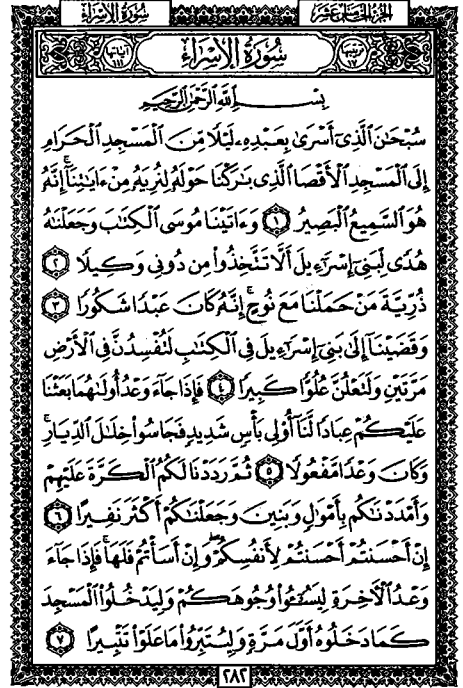 سُورَةُ الإِسْرَاءِ
الجُزْءُ الخَامِسَ عَشَرَ
سُورَةُ الإِسْرَاءِ
ترتيبها ١٧
آياتها ١١١
بِسْمِ اللَّهِ الرَّحْمَٰنِ الرَّحِيمِ
سُبْحَٰنَ ٱلَّذِىٓ أَسْرَىٰ بِعَبْدِهِۦ لَيْلًا مِّنَ ٱلْمَسْجِدِ ٱلْحَرَامِ
إِلَى ٱلْمَسْجِدِ ٱلْأَقْصَا ٱلَّذِى بَٰرَكْنَا حَوْلَهُۥ لِنُرِيَهُۥ مِنْ ءَايَٰتِنَآ ۚ إِنَّهُۥ
هُوَ ٱلسَّمِيعُ ٱلْبَصِيرُ ١ وَءَاتَيْنَا مُوسَى ٱلْكِتَٰبَ وَجَعَلْنَٰهُ
هُدًى لِّبَنِىٓ إِسْرَٰٓءِيلَ أَلَّا تَتَّخِذُوا۟ مِن دُونِى وَكِيلًا ٢
ذُرِّيَّةَ مَنْ حَمَلْنَا مَعَ نُوحٍ ۚ إِنَّهُۥ كَانَ عَبْدًا شَكُورًا ٣
وَقَضَيْنَآ إِلَىٰ بَنِىٓ إِسْرَٰٓءِيلَ فِى ٱلْكِتَٰبِ لَتُفْسِدُنَّ فِى ٱلْأَرْضِ
مَرَّتَيْنِ وَلَتَعْلُنَّ عُلُوًّا كَبِيرًا ٤ فَإِذَا جَآءَ وَعْدُ أُولَىٰهُمَا بَعَثْنَا
عَلَيْكُمْ عِبَادًا لَّنَآ أُو۟لِى بَأْسٍ شَدِيدٍ فَجَاسُوا۟ خِلَٰلَ ٱلدِّيَارِ ۚ
وَكَانَ وَعْدًا مَّفْعُولًا ٥ ثُمَّ رَدَدْنَا لَكُمُ ٱلْكَرَّةَ عَلَيْهِمْ
وَأَمْدَدْنَٰكُم بِأَمْوَٰلٍ وَبَنِينَ وَجَعَلْنَٰكُمْ أَكْثَرَ نَفِيرًا ٦
إِنْ أَحْسَنتُمْ أَحْسَنتُمْ لِأَنفُسِكُمْ ۖ وَإِنْ أَسَأْتُمْ فَلَهَا ۚ فَإِذَا جَآءَ
وَعْدُ ٱلْءَاخِرَةِ لِيَسُۥٓـُٔوا۟ وُجُوهَكُمْ وَلِيَدْخُلُوا۟ ٱلْمَسْجِدَ
كَمَا دَخَلُوهُ أَوَّلَ مَرَّةٍ وَلِيُتَبِّرُوا۟ مَا عَلَوْا۟ تَتْبِيرًا ٧
٢٨٢